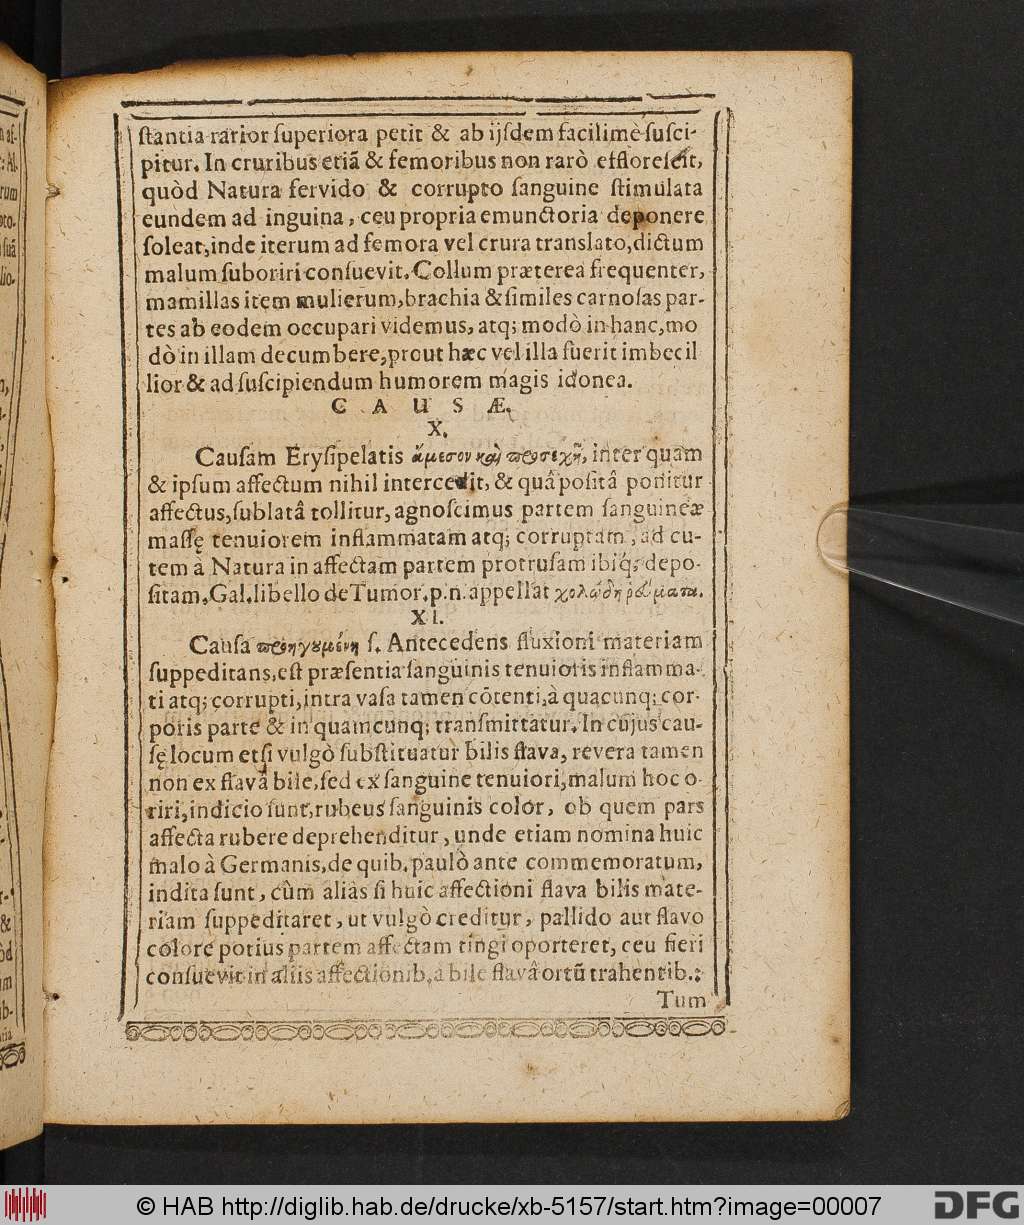 ſtantia rarior ſuperiora petit & ab ijſdem facilimè ſuſci-
pitur. In cruribus etiã & femoribus non rarò effloreſcit,
quòd Natura fervido & corrupto ſanguine ſtimulata
eundem ad inguina, ceu propria emunctoria deponere
ſoleat, inde iterum ad femora vel crura translato, dictum
malum ſuboriri conſuevit. Collum præterea frequenter,
mamillas item mulierum, brachia & ſimiles carnoſas par-
tes ab eodem occupari videmus, atq; modò in hanc, mo
dò in illam decumbere, prout hæc vel illa fuerit imbecil
lior & ad ſuſcipiendum humorem magis idonea.
C A U S Æ.
X.
Cauſam Eryſipelatis ἄμεσον καὶ προσεχῆ, inter quam
& ipſum affectum nihil intercedit, & quâ poſitâ ponitur
affectus, ſublatâ tollitur, agnoſcimus partem ſanguineæ
maſſę tenuiorem inflammatam atq; corruptam, ad cu-
tem à Natura in affectam partem protruſam ibiq; depo-
ſitam. Gal. libello de Tumor. p. n. appellat χολώδη ῥεύματα.
XI.
Cauſa προηγουμένη ſ. Antecedens fluxioni materiam
ſuppeditans, eſt præſentia ſanguinis tenuioris inflamma-
ti atq; corrupti, intra vaſa tamen cõtenti, à quacunq; cor-
poris parte & in quamcunq; transmittatur. In cujus cau-
ſę locum etſi vulgò ſubſtituatur bilis flava, revera tamen
non ex flavâ bile, ſed ex ſanguine tenuiori, malum hoc o-
riri, indicio ſunt, rubeus ſanguinis color, ob quem pars
affecta rubere deprehenditur, unde etiam nomina huic
malo à Germanis, de quib. paulò ante commemoratum,
indita ſunt, cùm aliàs ſi huic affectioni flava bilis mate-
riam ſuppeditaret, ut vulgò creditur, pallido aut flavo
colore potius partem affectam tingi oporteret, ceu fieri
conſuevit in aliis affectionib. à bile flavâ ortũ trahentib.:
Tum
© HAB http://diglib.hab.de/drucke/xb-5157/start.htm?image=00007
DFG